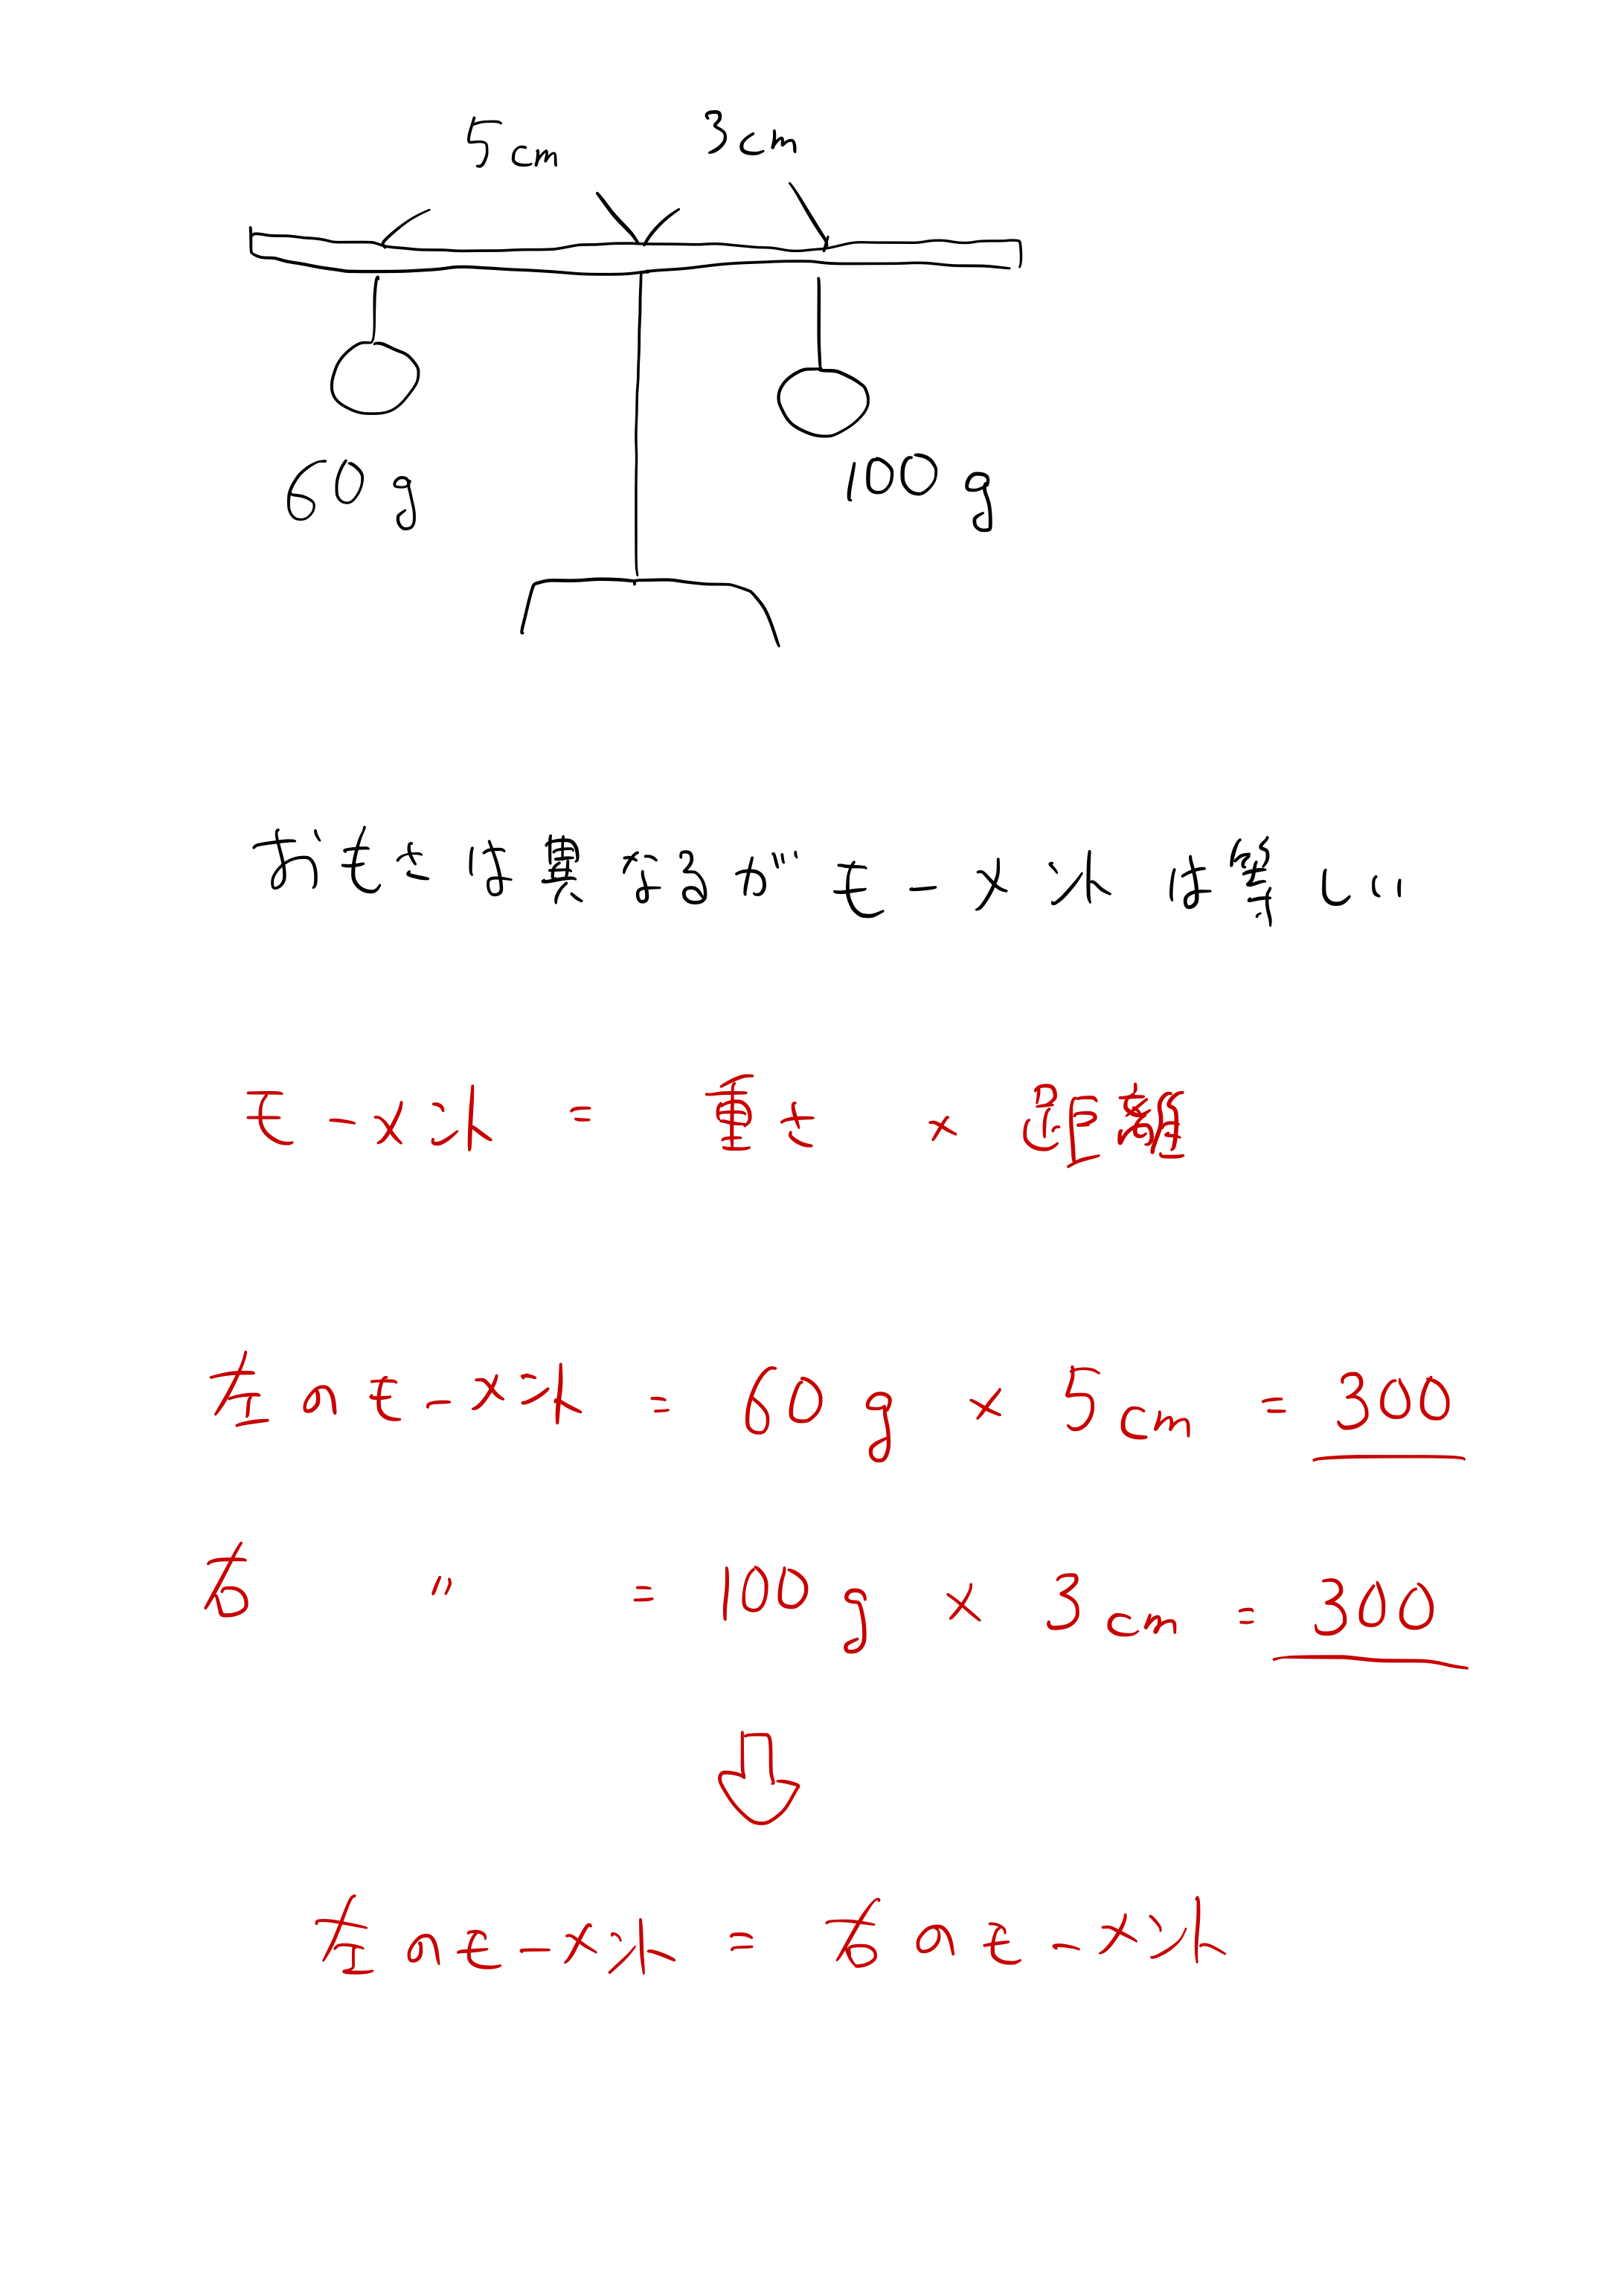 5cm 3cm
60g 100g
おもさは異なるがモーメントは等しい
モーメント = 重さ × 距離
左のモーメント = 60g × 5cm = 300
右 〃 = 100g × 3cm = 300
左のモーメント = 右のモーメント